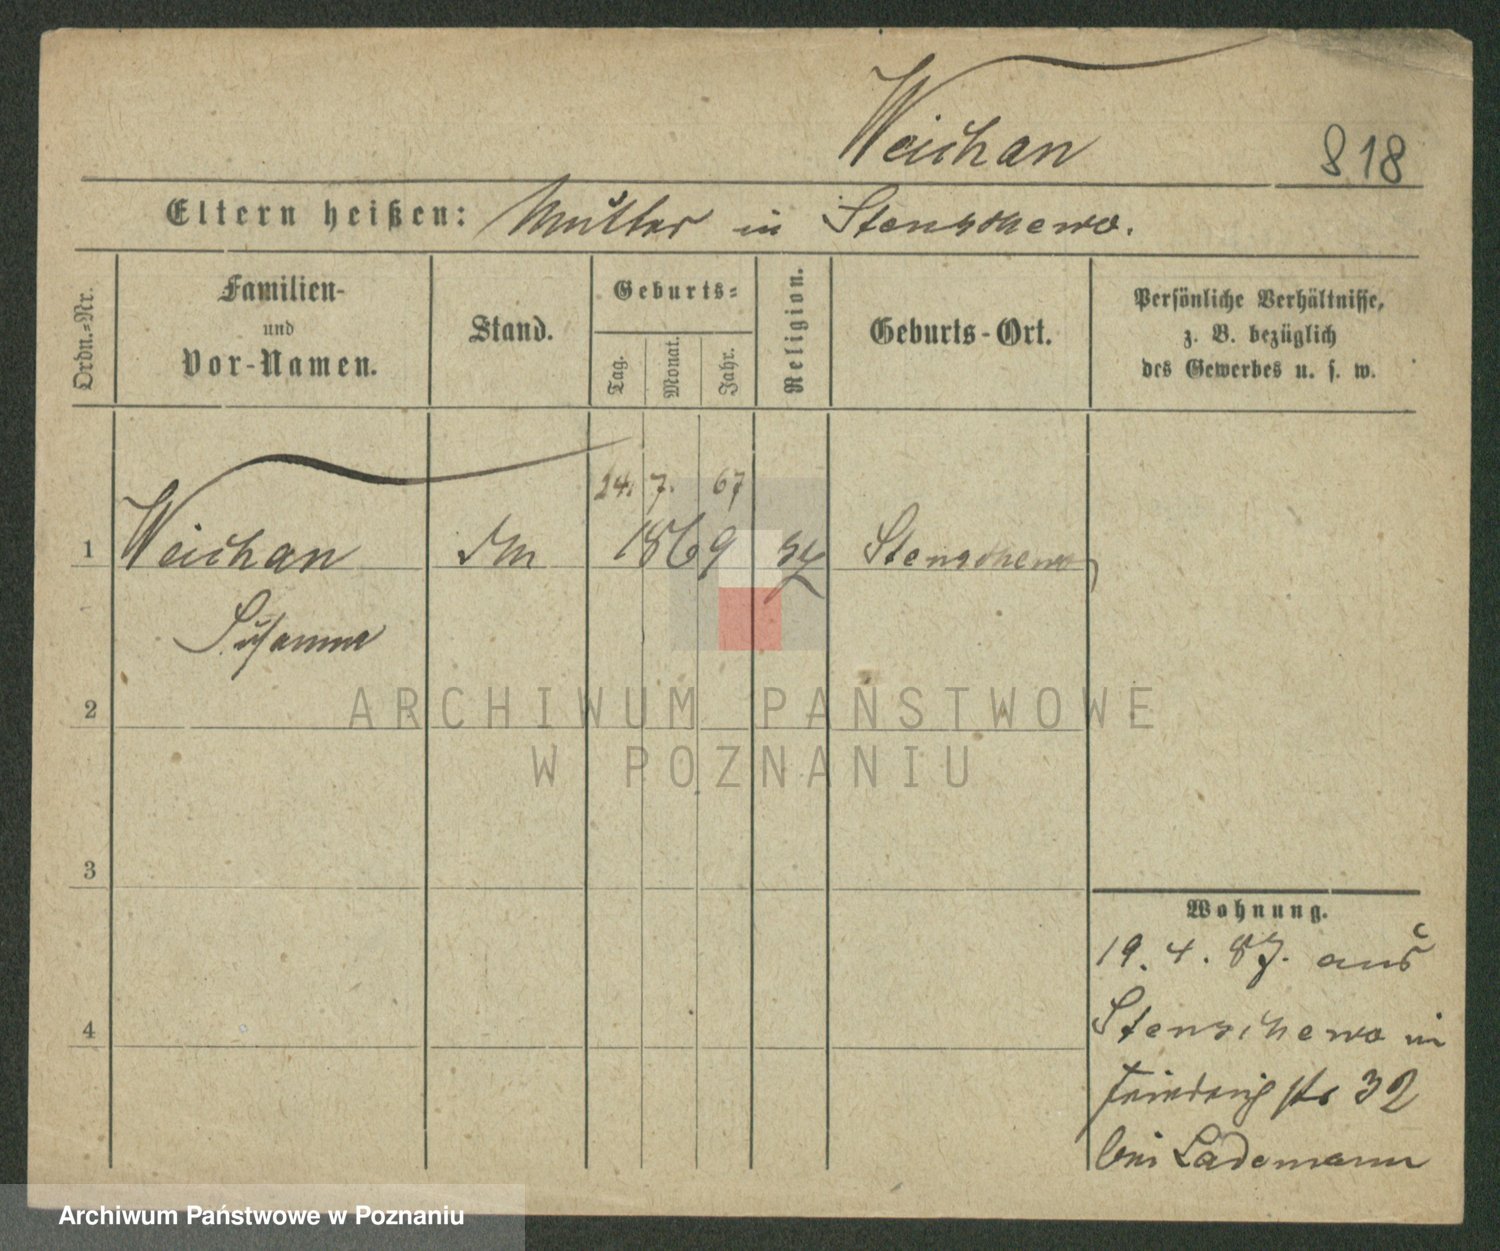 Weichan
818
Eltern heißen: Mutter in Stenschewo.
Ordn.=Nr.
Familien-
und
Vor-Namen.
Stand.
Geburts=
Tag.
Monat.
Jahr.
Religion.
Geburts-Ort.
Persönliche Verhältnisse,
z. B. bezüglich
des Gewerbes u. s. w.
24. 7. 67
1 Weichan 1869 Stenschewo
Susanna
2
3
4
Wohnung.
19. 4. 87. aus
Stenschewo in
Friedrichstr 32
bei Lademann
ARCHIWUM PAŃSTWOWE
W POZNANIU
Archiwum Państwowe w Poznaniu